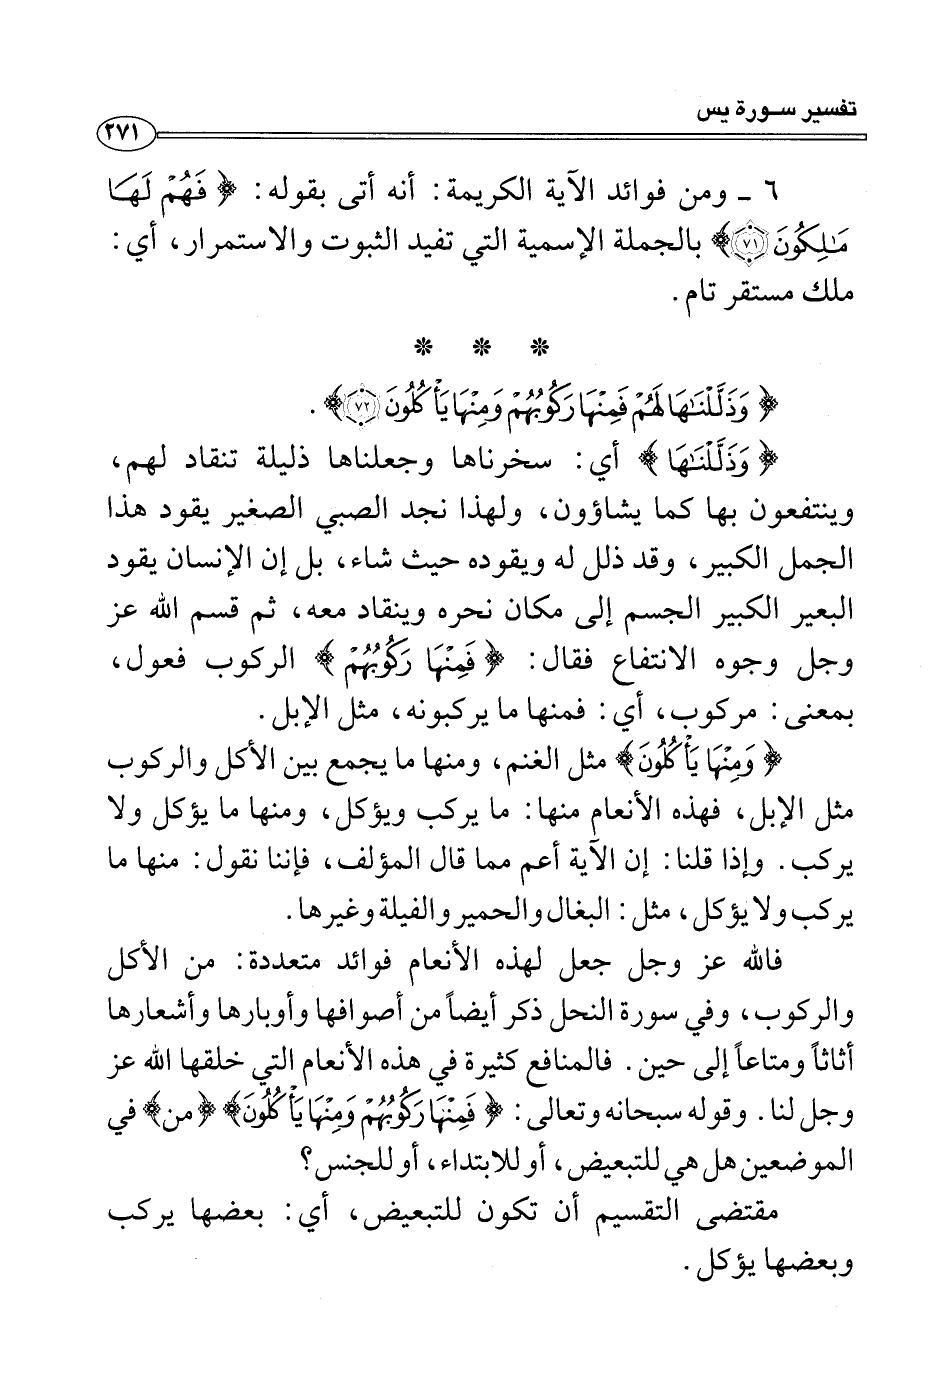 تفسير سـورة يس
٢٧١
٦ ـ ومن فوائد الآية الكريمة: أنه أتى بقوله: ﴿ فَهُمْ لَهَا
مَٰلِكُونَ ٧١﴾ بالجملة الإسمية التي تفيد الثبوت والاستمرار، أي:
ملك مستقر تام.
* * *
﴿ وَذَلَّلْنَٰهَا لَهُمْ فَمِنْهَا رَكُوبُهُمْ وَمِنْهَا يَأْكُلُونَ ٧٢﴾.
﴿ وَذَلَّلْنَٰهَا ﴾ أي: سخرناها وجعلناها ذليلة تنقاد لهم،
وينتفعون بها كما يشاؤون، ولهذا نجد الصبي الصغير يقود هذا
الجمل الكبير، وقد ذلل له ويقوده حيث شاء، بل إن الإنسان يقود
البعير الكبير الجسم إلى مكان نحره وينقاد معه، ثم قسم الله عز
وجل وجوه الانتفاع فقال: ﴿ فَمِنْهَا رَكُوبُهُمْ ﴾ الركوب فعول،
بمعنى: مركوب، أي: فمنها ما يركبونه، مثل الإبل.
﴿ وَمِنْهَا يَأْكُلُونَ﴾ مثل الغنم، ومنها ما يجمع بين الأكل والركوب
مثل الإبل، فهذه الأنعام منها: ما يركب ويؤكل، ومنها ما يؤكل ولا
يركب. وإذا قلنا: إن الآية أعم مما قال المؤلف، فإننا نقول: منها ما
يركب ولا يؤكل، مثل: البغال والحمير والفيلة وغيرها.
فالله عز وجل جعل لهذه الأنعام فوائد متعددة: من الأكل
والركوب، وفي سورة النحل ذكر أيضاً من أصوافها وأوبارها وأشعارها
أثاثاً ومتاعاً إلى حين. فالمنافع كثيرة في هذه الأنعام التي خلقها الله عز
وجل لنا. وقوله سبحانه وتعالى: ﴿ فَمِنْهَا رَكُوبُهُمْ وَمِنْهَا يَأْكُلُونَ﴾ ﴿من﴾ في
الموضعين هل هي للتبعيض، أو للابتداء، أو للجنس؟
مقتضى التقسيم أن تكون للتبعيض، أي: بعضها يركب
وبعضها يؤكل.